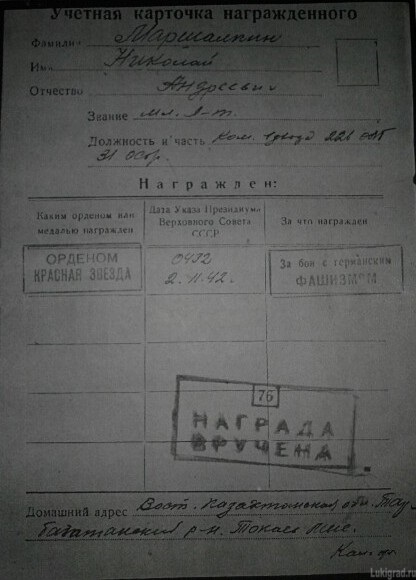 Учетная карточка награжденного
Фамилия
Имя Николай
Отчество Андреевич
Звание мл. л-т.
Должность и часть Ком. взвода 221
31
Награжден:
Каким орденом или медалью награжден
Дата Указа Президиума Верховного Совета СССР
За что награжден
ОРДЕНОМ
КРАСНАЯ ЗВЕЗДА
0492
2.11.42.
За бои с германским
ФАШИЗМОМ
76
НАГРАДА
ВРУЧЕНА
Домашний адрес Вост. Казахстанская обл.
р-н.
Lukigrad.ru